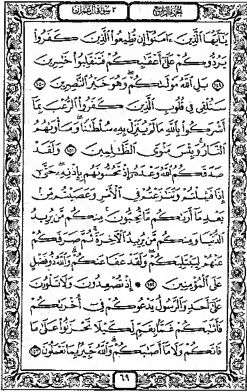 الجزء الرابع ٣ سورة آل عمران
يَٰٓأَيُّهَا ٱلَّذِينَ ءَامَنُوٓا۟ إِن تُطِيعُوا۟ ٱلَّذِينَ كَفَرُوا۟
يَرُدُّوكُمْ عَلَىٰٓ أَعْقَٰبِكُمْ فَتَنقَلِبُوا۟ خَٰسِرِينَ
﴿١٤٩﴾ بَلِ ٱللَّهُ مَوْلَىٰكُمْ وَهُوَ خَيْرُ ٱلنَّٰصِرِينَ ﴿١٥٠﴾
سَنُلْقِى فِى قُلُوبِ ٱلَّذِينَ كَفَرُوا۟ ٱلرُّعْبَ بِمَآ
أَشْرَكُوا۟ بِٱللَّهِ مَا لَمْ يُنَزِّلْ بِهِۦ سُلْطَٰنًا وَمَأْوَىٰهُمُ
ٱلنَّارُ وَبِئْسَ مَثْوَى ٱلظَّٰلِمِينَ ﴿١٥١﴾ وَلَقَدْ
صَدَقَكُمُ ٱللَّهُ وَعْدَهُۥٓ إِذْ تَحُسُّونَهُم بِإِذْنِهِۦ حَتَّىٰٓ
إِذَا فَشِلْتُمْ وَتَنَٰزَعْتُمْ فِى ٱلْأَمْرِ وَعَصَيْتُم مِّنۢ
بَعْدِ مَآ أَرَىٰكُم مَّا تُحِبُّونَ مِنكُم مَّن يُرِيدُ
ٱلدُّنْيَا وَمِنكُم مَّن يُرِيدُ ٱلْءَاخِرَةَ ثُمَّ صَرَفَكُمْ
عَنْهُمْ لِيَبْتَلِيَكُمْ وَلَقَدْ عَفَا عَنكُمْ وَٱللَّهُ ذُو فَضْلٍ
عَلَى ٱلْمُؤْمِنِينَ ﴿١٥٢﴾ إِذْ تُصْعِدُونَ وَلَا تَلْوُۥنَ
عَلَىٰٓ أَحَدٍ وَٱلرَّسُولُ يَدْعُوكُمْ فِىٓ أُخْرَىٰكُمْ
فَأَثَٰبَكُمْ غَمًّۢا بِغَمٍّ لِّكَيْلَا تَحْزَنُوا۟ عَلَىٰ مَا
فَاتَكُمْ وَلَا مَآ أَصَٰبَكُمْ وَٱللَّهُ خَبِيرٌۢ بِمَا تَعْمَلُونَ ﴿١٥٣﴾
٦٩